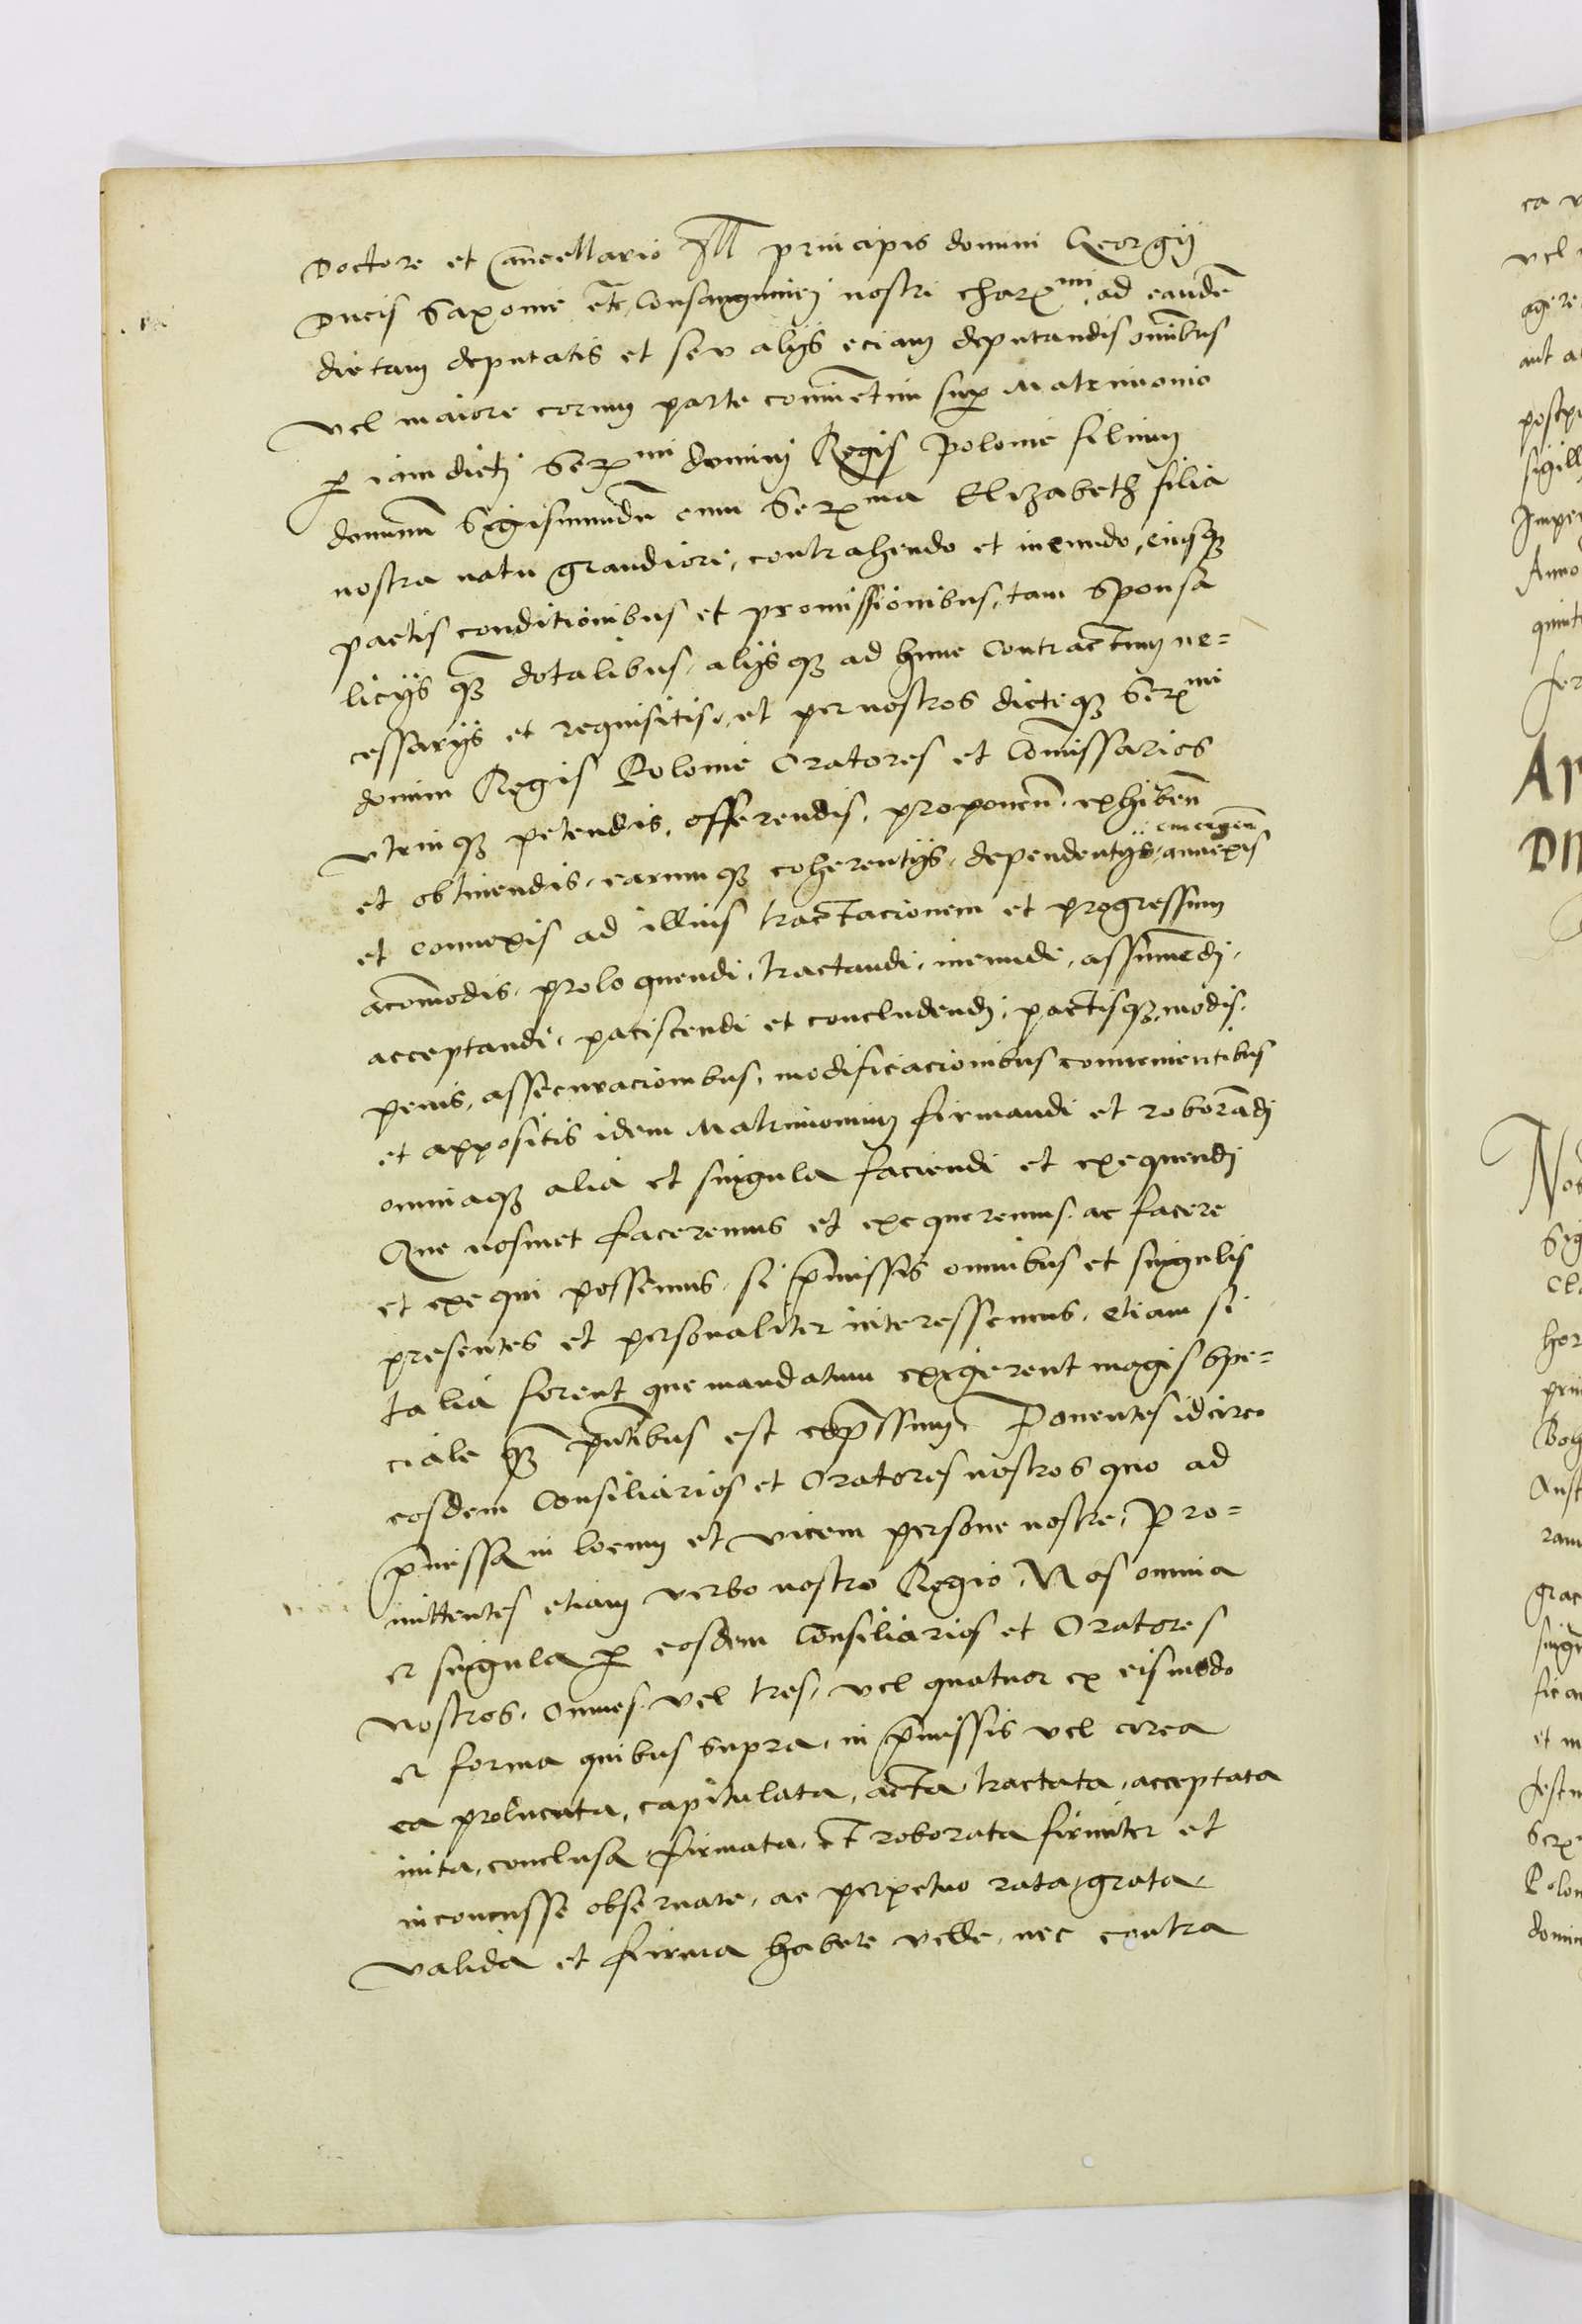 Doctore et Cancellario Ill principis domini Georgij
Ducis Saxonie etc Consanguinej nostri charxmi ad eandē
dietam deputatis et seu alijs eciam deputandis omībus
vel maiore eorum parte coniunctim super Matrimonio
p iam dictj Serxmi dominj Regis Polonie filium
dominum Sigismundū cum Serxma Elizabeth filia
nostra natu grandiore, contrahendo et ineundo, eiusq
pactis conditionibus et promissionibus, tam sponsa
licijs q dotalibus, alijsq ad hunc Contractum ne=
cessarijs et requisitis, et per nostros dicteq Serxmi
domini Regis Polonie Oratores et Comissarios
vtrinq petendis, offerendis, proponen, exhiben
emergen
et obtinendis, earumq coherentijs, dependentijs, annexis
et connexis ad illius tractacionem et progressum
acomodis, proloquendi, tractandi, ineundi, assumēdj,
acceptandi, paciscendi et concludendj, pactisq, modis,
penis, assecuracionibus, modificacionibus conuenientibus
et appositis idem Matrimonium firmandi et roborādj
omniaq alia et singula faciendi et exequendj
Que nosmet faceremus et exequeremus, ac facere
et exequi possemus, si pmissis omnibus et singulis
presentes et personaliter interessemus, etiam si
talia forent que mandatum exigerent magis spe=
ciale q pntibus est expssum Ponentes idcirco
eosdem Consiliarios et Oratores nostros quo ad
pmissa in locum et vicem persone nostre, Pro=
mittentes etiam verbo nostro Regio, Nos omnia
et singula p eosdem Consiliarios et Oratores
nostros, Omnes, vel tres, vel quatuor ex eis modo
et forma quibus supra, in pmissis vel circa
ea prolucuta, capitulata, acta, tractata, acceptata
inita, conclusa, firmata, et roborata firmiter et
inconcusse obseruare, ac perpetuo rata, grata,
valida et firma habere velle, nec contra